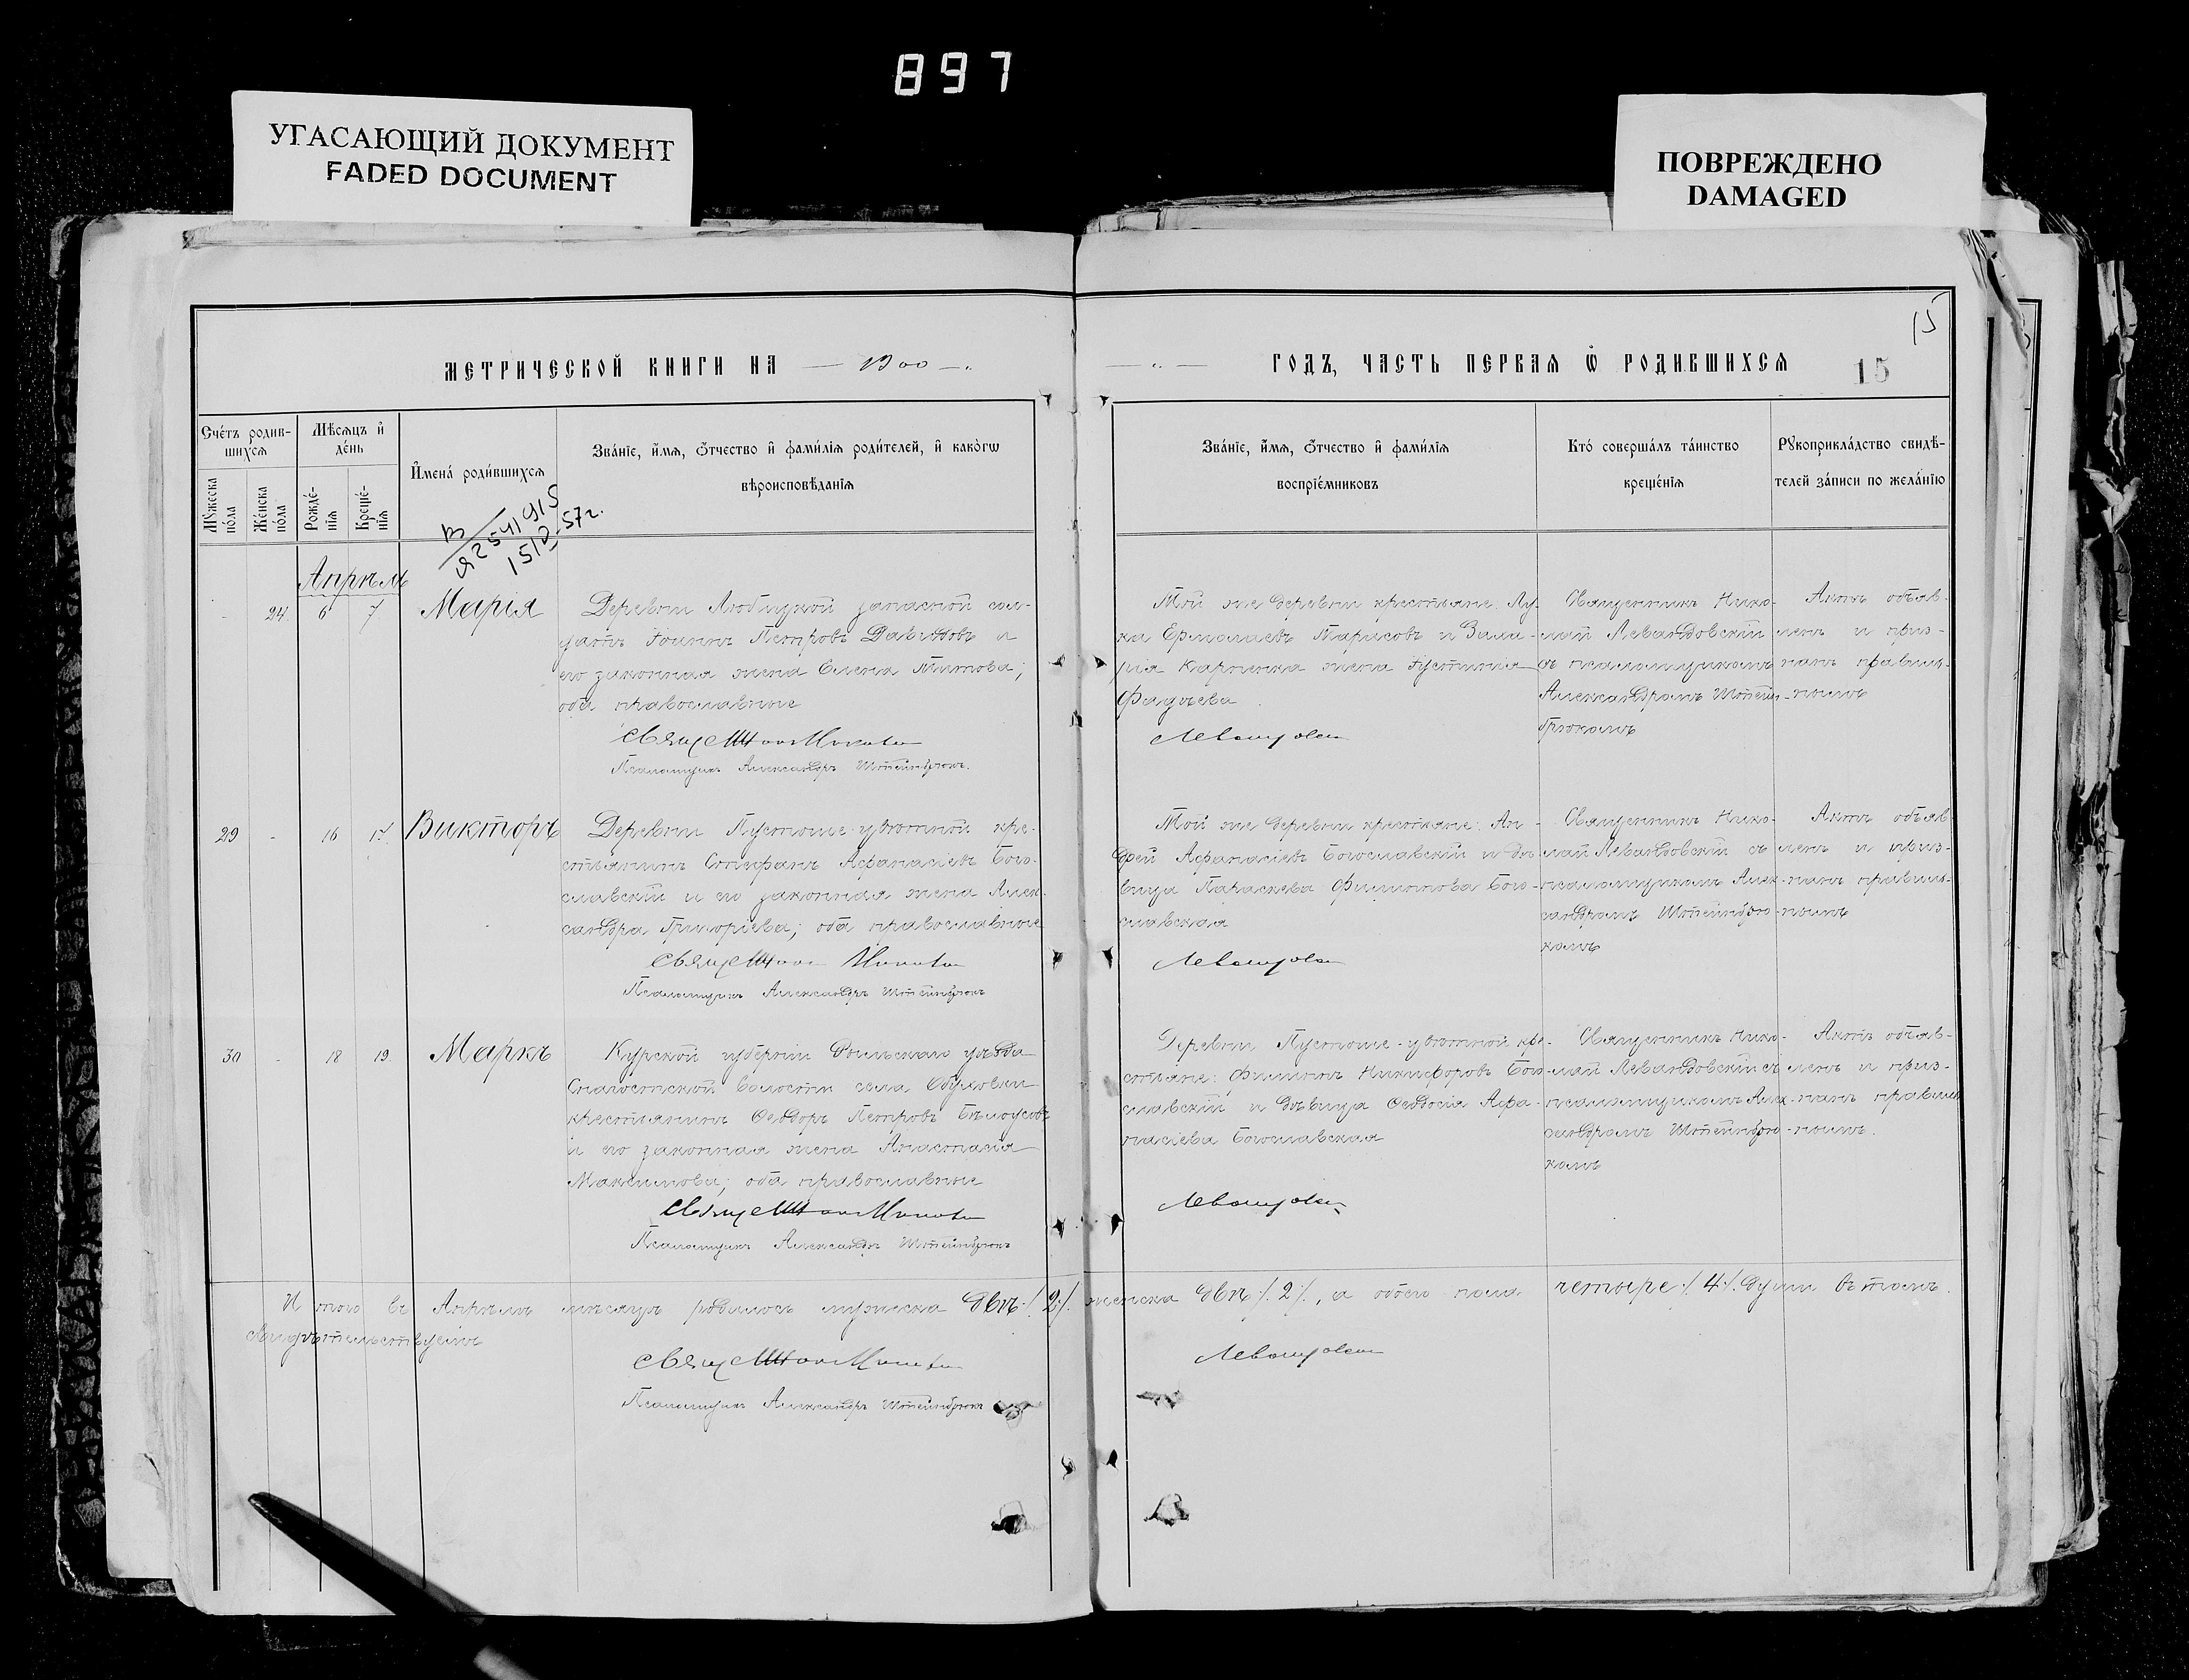 897
УГАСАЮЩИЙ ДОКУМЕНТ
FADED DOCUMENT
ПОВРЕЖДЕНО
DAMAGED
15
МЕТРИЧЕСКОЙ КНИГИ НА — 1900 —
ГОДЪ, ЧАСТЬ ПЕРВАЯ Ѽ РОДИВШИХСЯ
15
Счéтъ родив-
шихся
Мѣсяцъ и
дéнь
Мужеска
пóла
Жéнска
пóла
Рождé-
нія
Крещé-
нія
Именá роди́вшихся
Звáніе, и́мя, ѻ́тчество и фами́лія роди́телей, и какóгѡ
вѣроисповѣ́данія
Звáніе, и́мя, ѻ́тчество и фами́лія
воспріéмниковъ
Ктó совершáлъ тáинство
крещéнія
Рꙋкоприклáдство свидѣ́-
телей зáписи по желáнію
2541915
15/V-57г.
Апрѣль
24 6 7 Марія
Деревни Люблицкой запасной сол-
датъ Іоаннъ Петровъ Давыдовъ и
его законная жена Елена Титова;
оба православные
Псаломщикъ Александръ Штейнбрюкъ.
Той же деревни крестьяне: Лу-
ка Ермолаевъ Тарасовъ и
жена Іустинія
Фадѣева
Левандовскій
Священникъ Нико-
лай Левандовскій
съ псаломщикомъ
Александромъ Штейн-
брюкомъ
Актъ объяв-
ленъ и приз-
нанъ правиль-
нымъ
29 - 16 17 Викторъ
Деревни Пустоше-уютной кре-
стьянинъ Стефанъ Аѳанасіевъ Бого-
славскій и его законная жена Алек-
сандра Григоріева; оба православные
Псаломщикъ Александръ Штейнбрюкъ
Той же деревни крестьяне: Ан-
дрей Аѳанасіевъ Богославскій и дѣ-
вица Параскева Филиппова Бого-
славская
Левандовскій
Священникъ Нико-
лай Левандовскій съ
псаломщикомъ Алек-
сандромъ Штейнбрю-
комъ
Актъ объяв-
ленъ и приз-
нанъ правиль-
нымъ
30 - 18 19 Маркъ
Курской губерніи Рыльскаго уѣзда
волости села Обуховки
крестьянинъ Ѳеодоръ Петровъ Бѣлоусовъ
и его законная жена Анастасія
Максимова; оба православные
Псаломщикъ Александръ Штейнбрюкъ
Деревни Пустоше-уютной кре-
стьяне: Филиппъ Никифоровъ Бого-
славскій и дѣвица Ѳеодосія Аѳа-
насіева Богославская
Левандовскій
Священникъ Нико-
лай Левандовскій съ
псаломщикомъ Алек-
сандромъ Штейнбрю-
комъ
Актъ объяв-
ленъ и приз-
нанъ правиль-
нымъ.
Итого въ Апрѣлѣ мѣсяцѣ родилось мужеска двѣ ./.2./. женска двѣ ./.2./., а обоего пола четыре ./.4./. души въ томъ
свидѣтельствуемъ
Левандовскій
Псаломщикъ Александръ Штейнбрюкъ